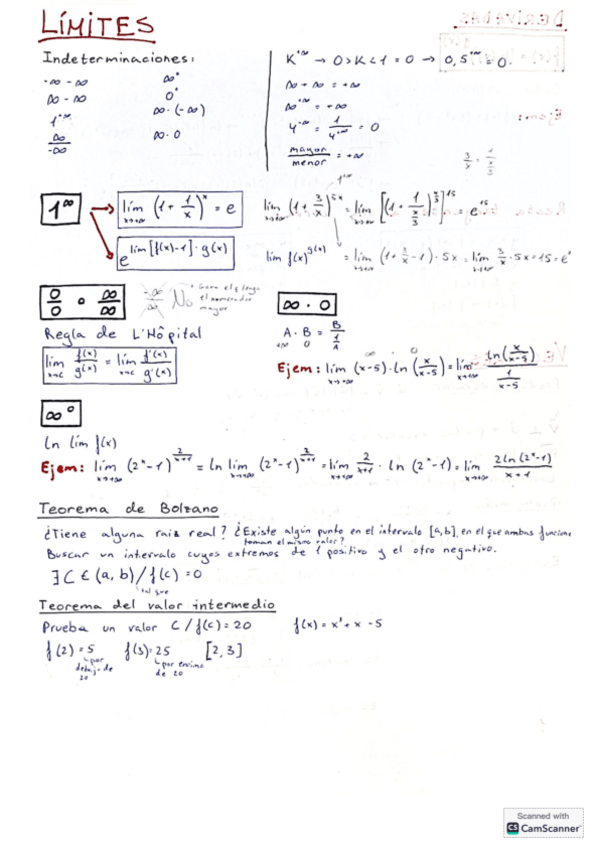 LÍMITES
Indeterminaciones:
-∞ - ∞
∞ - ∞
1^+∞
∞/-∞
∞°
0°
∞·(-∞)
∞·0
K^+∞ → 0>K<1 = 0 → 0,5^+∞ = 0.
∞ + ∞ = +∞
∞^+∞ = +∞
4^-∞ = 1/4^+∞ = 0
mayor/menor = +∞
1^∞
lím x→+∞ (1 + 1/x)^x = e
e^lím [f(x)-1]·g(x)
1^+∞
lím x→+∞ (1 + 3/x)^5x = lím x→+∞ [(1 + 1/(x/3))^(x/3)]^15 = e^15
lím f(x)^g(x) = lím x→+∞ (1 + 3/x - 1)·5x = lím x→+∞ 3/x · 5x = 15 = e
0/0 o ∞/∞
No
el numerador
mayor
Regla de L'Hôpital
lím x→c f(x)/g(x) = lím x→c f'(x)/g'(x)
∞·0
A·B = B/(1/A)
∞ 0
Ejem: lím x→+∞ (x-5)·ln(x/(x-5)) = lím x→+∞ ln(x/(x-5))/(1/(x-5))
∞°
ln lím f(x)
Ejem: lím x→+∞ (2^x-1)^(2/(x+1)) = ln lím x→+∞ (2^x-1)^(2/(x+1)) = lím x→+∞ 2/(x+1) · ln(2^x-1) = lím x→+∞ 2ln(2^x-1)/(x+1)
Teorema de Bolzano
¿Tiene alguna raiz real? ¿Existe algún punto en el intervalo [a,b], en el que ambas funcione
toman el mismo valor?
Buscar un intervalo cuyos extremos de 1 positivo y el otro negativo.
∃ C € (a, b)/f(c) = 0
tal que
Teorema del valor intermedio
Prueba un valor C/f(c) = 20
f(2) = 5 f(3) = 25 [2,3]
por
debajo de
20
por encima
de 20
Scanned with
CS CamScanner